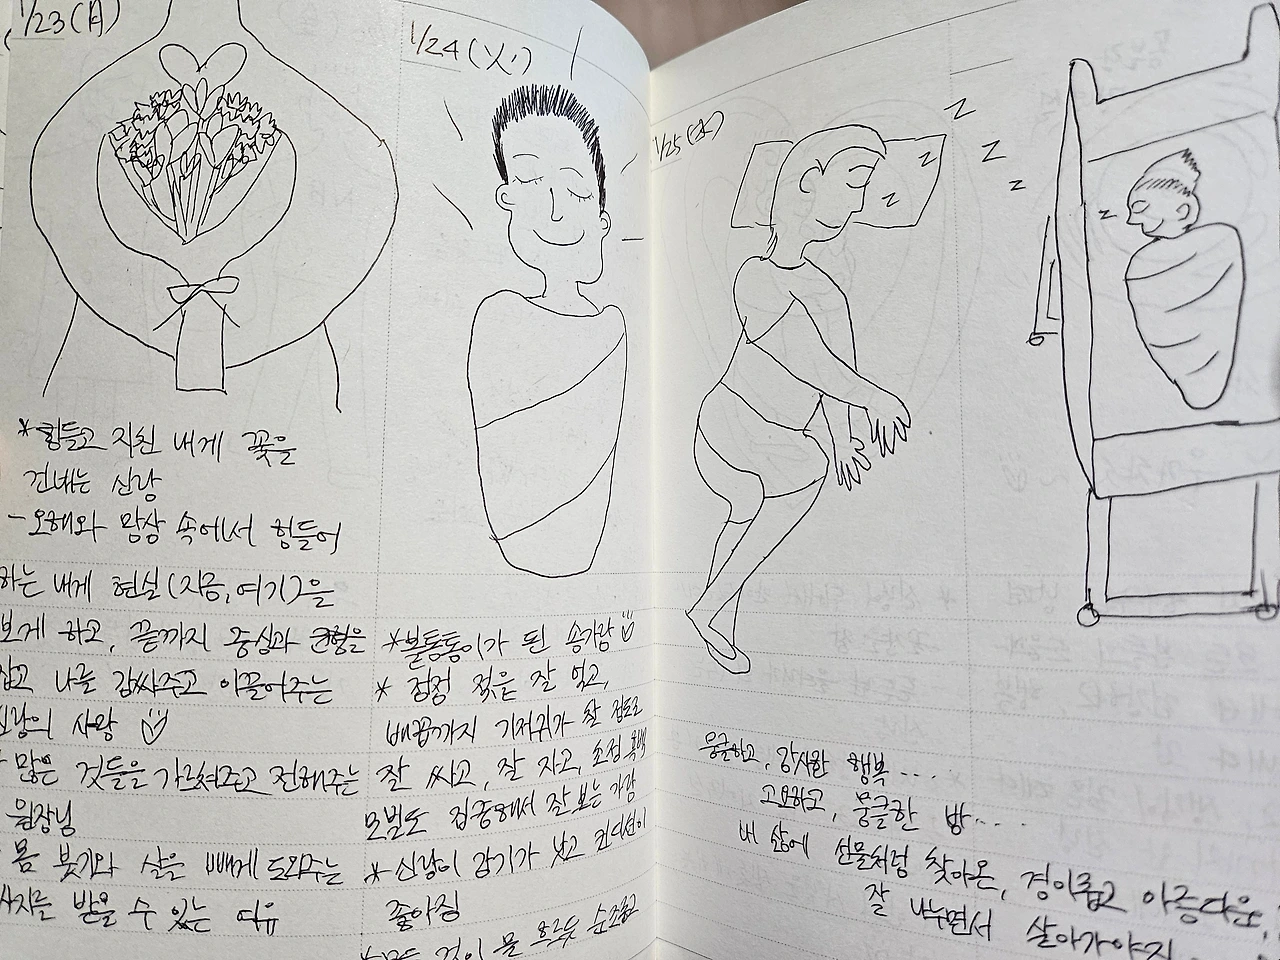 1/23(月)
*힘들고 지친 내게 꽃을
건네는 신랑
-오해와 망상 속에서 힘들어
하는 내게 현실(지금,여기)을
보게 하고, 끝까지 중심과 균형을
잡고 나를 감싸주고 이끌어주는
신랑의 사랑
많은 것들을 가르쳐주고 전해주는
원장님
몸 붓기와 살을 빼게 도와주는
받을 수 있는 여유
1/24(火)
*볼통통이가 된 송가람
* 점점 젖을 잘 먹고,
배꼽까지 기저귀가 찰 정도로
잘 싸고, 잘 자고, 초점
모빌도 집중해서 잘 보는 가람
* 신랑이 감기가 낫고 컨디션이
좋아짐
것이 물 흐르듯 순조롭고
1/25(水)
z z z
z
z
z
z
뭉클하고, 감사한 행복....
고요하고, 뭉클한 밤....
내 삶에 선물처럼 찾아온, 경이롭고 아름다운,
잘 나누면서 살아가야지...